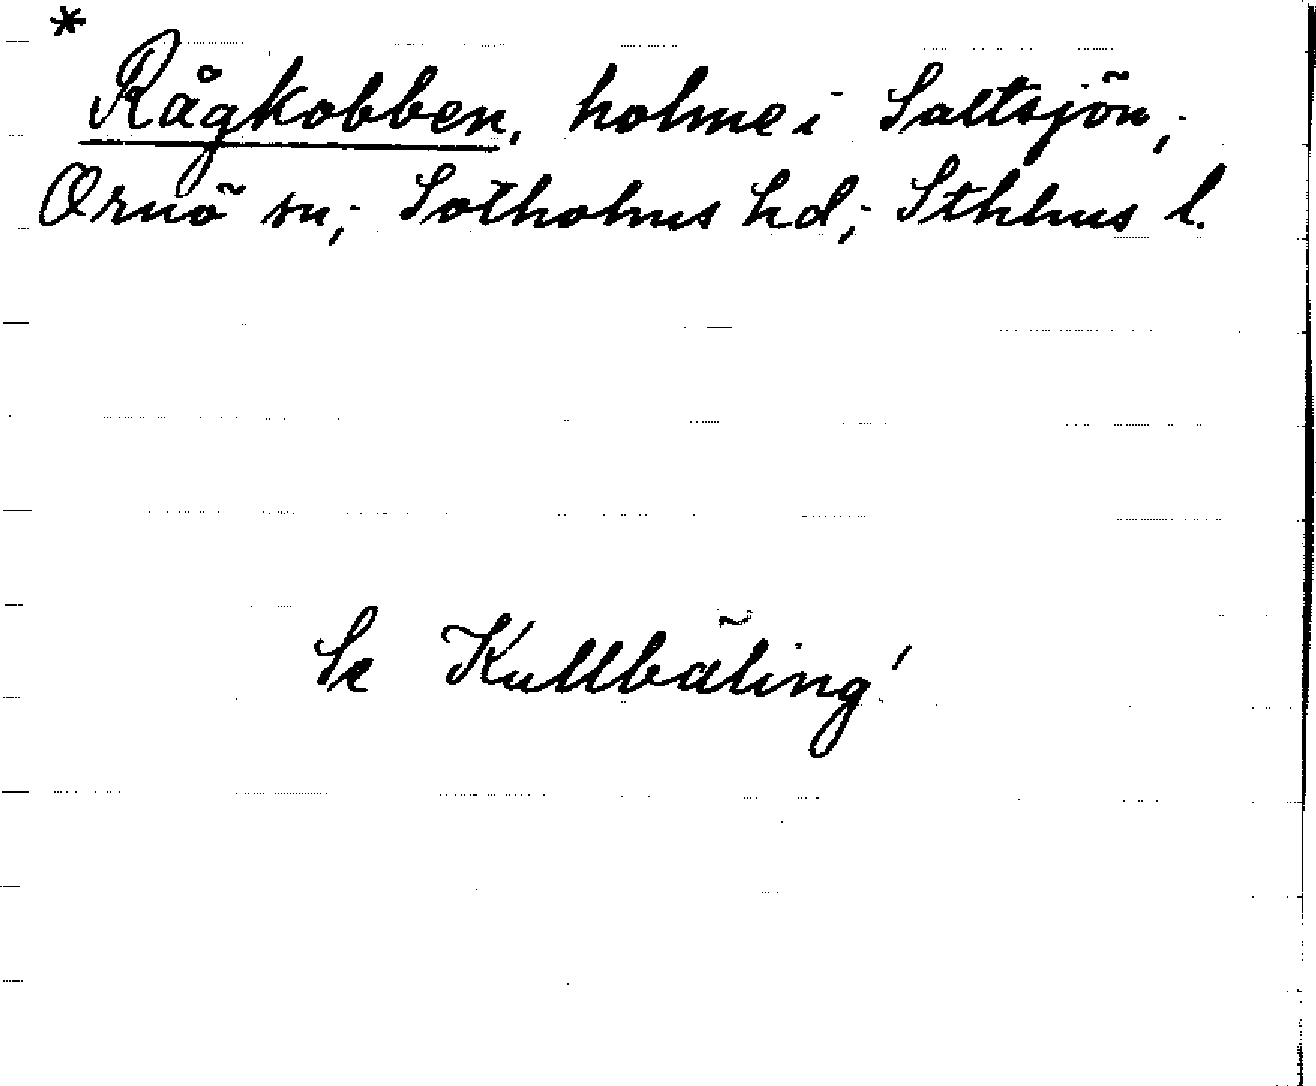 *
Rågkobben, holme i Saltsjön;
Ornö sn; Sotholms hd; Sthlms l.
Se Kullbäling!